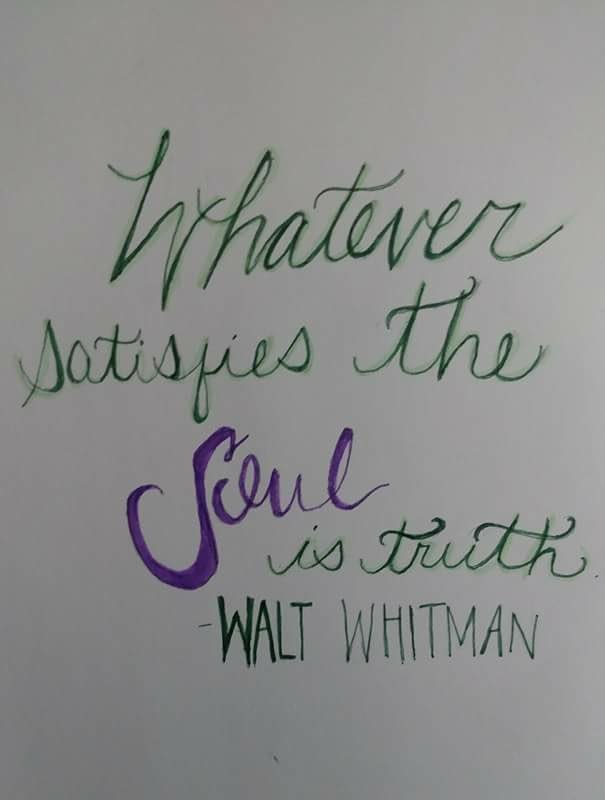 Whatever
satisfies the
Soul
is truth.
-WALT WHITMAN